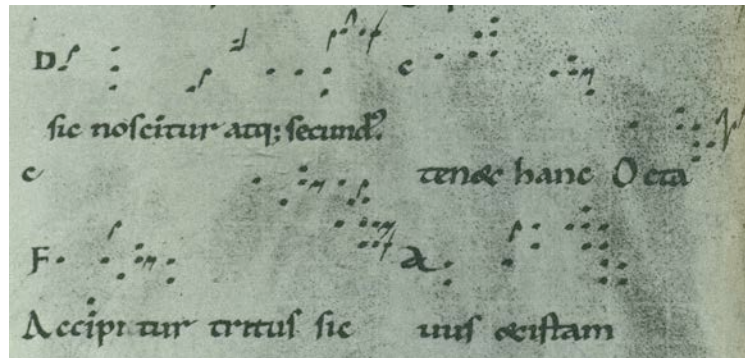 D c
sic noscitur atq; secundꝰ.
c ten& hanc Octa
F a
Accipitur tritus sic uus &istam